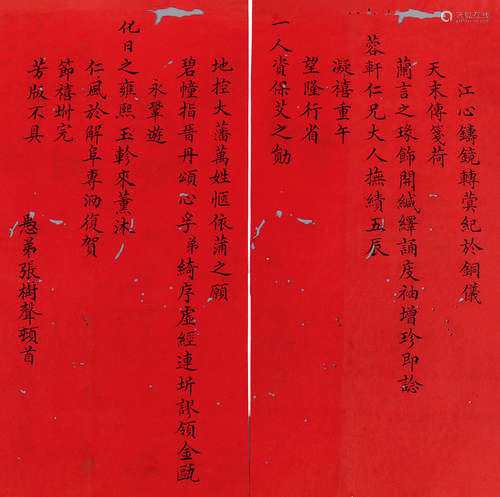 江心鑄鏡轉蓂紀於銅儀
天末傳箋荷
蘭言之瑑飾開緘繹誦度袖增珍即諗
蓉軒仁兄大人撫績五辰
凝禧重午
望隆行省
一人資保艾之勛
地控大藩萬姓愜依蒲之願
碧幢指晉丹頌心孚弟綺序虛經連圻謬領金甌
永鞏遊
化日之雍熙玉軫來薰沐
仁風於解阜專泐復賀
節禧坿完
芳版不具
愚弟張樹聲頓首